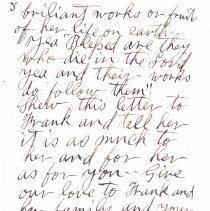 8
brilliant works or fruits
of her life on earth
"yea Blessed are they
who die in the Lord
yea and their works
do follow them"
Shew this letter to
Frank and tell her
it is as much to
her and for her
as for you - Give
our love to Frank and
her family and your